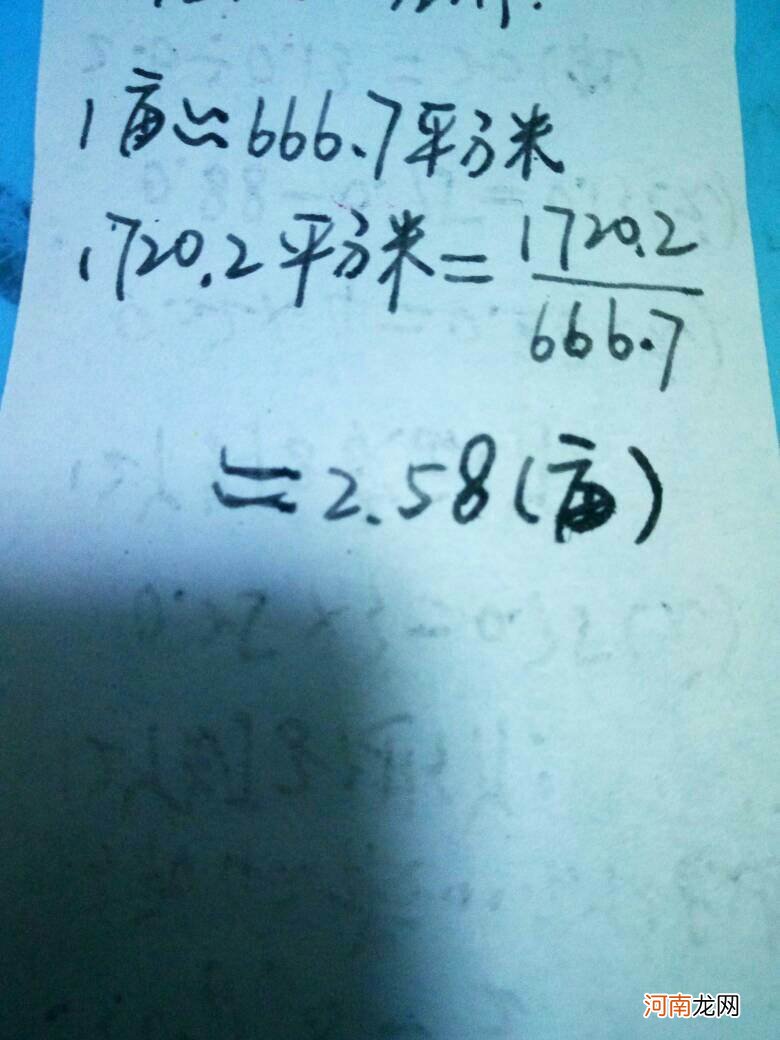 1亩≈666.7平方米
1720.2平方米=1720.2/666.7
≈2.58(亩)
河南龙网